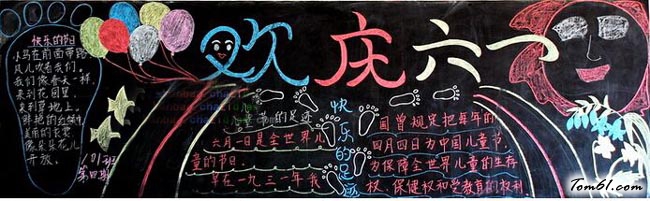 欢庆六一
快乐的节日
从马在前面带路
风儿吹着我们
我们像春天一样
来到花园里
来到草地上
鲜艳的红领巾
美丽的衣裳
像朵朵花儿
开放。
101班
第四期
节的足迹
六月一日是全世界儿
童的节日。
早在一九三一年我
快乐的足迹
国曾规定把每年的
四月四日为中国儿童节,
为保障全世界儿童的生存
权、保健权和受教育的权利
Tom61.com